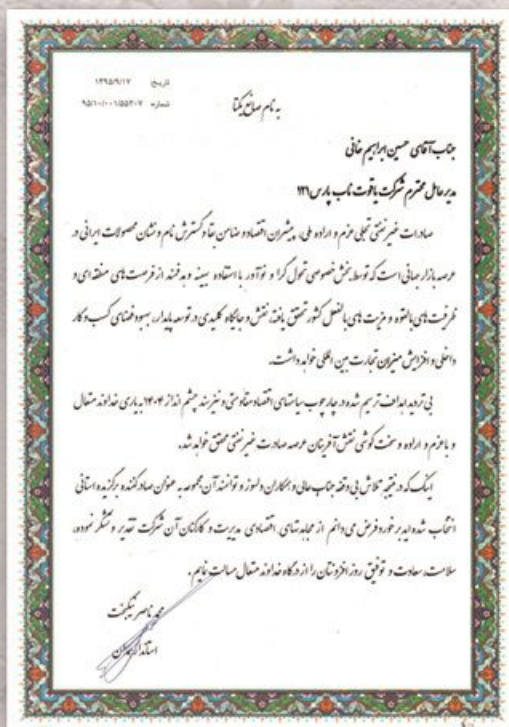 تاریخ: ۱۳۹۵/۹/۱۷
شماره: ۹۵/۱۰/۰۰۱/۵۵۲۰۷
به نام صانع یکتا
جناب آقای حسین ابراهیم خانی
مدیر عامل محترم شرکت یاقوت ناب پارس ۱۳۱
صادرات غیر نفتی تجلی عزم و اراده ملی، پیشران اقتصاد و ضامن بقا و گسترش نام و نشان محصولات ایرانی در
عرصه بازار جهانی است که توسط بخش خصوصی تحول گرا و نوآور با استفاده بهینه و هدفمند از فرصت های منطقه ای و
ظرفیت های بالقوه و مزیت های بالفعل کشور تحقق یافته، نقش و جایگاه کلیدی در توسعه پایدار، بهبود فضای کسب و کار
داخلی و افزایش میزان تجارت بین المللی خواهد داشت.
بی تردید اهداف ترسیم شده در چارچوب سیاستهای اقتصاد مقاومتی و نیز سند چشم انداز ۱۴۰۴ به یاری خداوند متعال
و با عزم و اراده و سخت کوشی نقش آفرینان عرصه صادرات غیر نفتی محقق خواهد شد.
اینک که در نتیجه تلاش بی وقفه جناب عالی و همکاران دلسوز و توانمند آن مجموعه به عنوان صادرکننده برگزیده استانی
انتخاب شده اید بر خود فرض می دانم از مجاهدتهای اقتصادی مدیریت و کارکنان آن شرکت تقدیر و تشکر نموده،
سلامت، سعادت و توفیق روز افزونتان را از درگاه خداوند متعال مسالت نمایم.
محمد ناصر نیکبخت
استاندار همدان